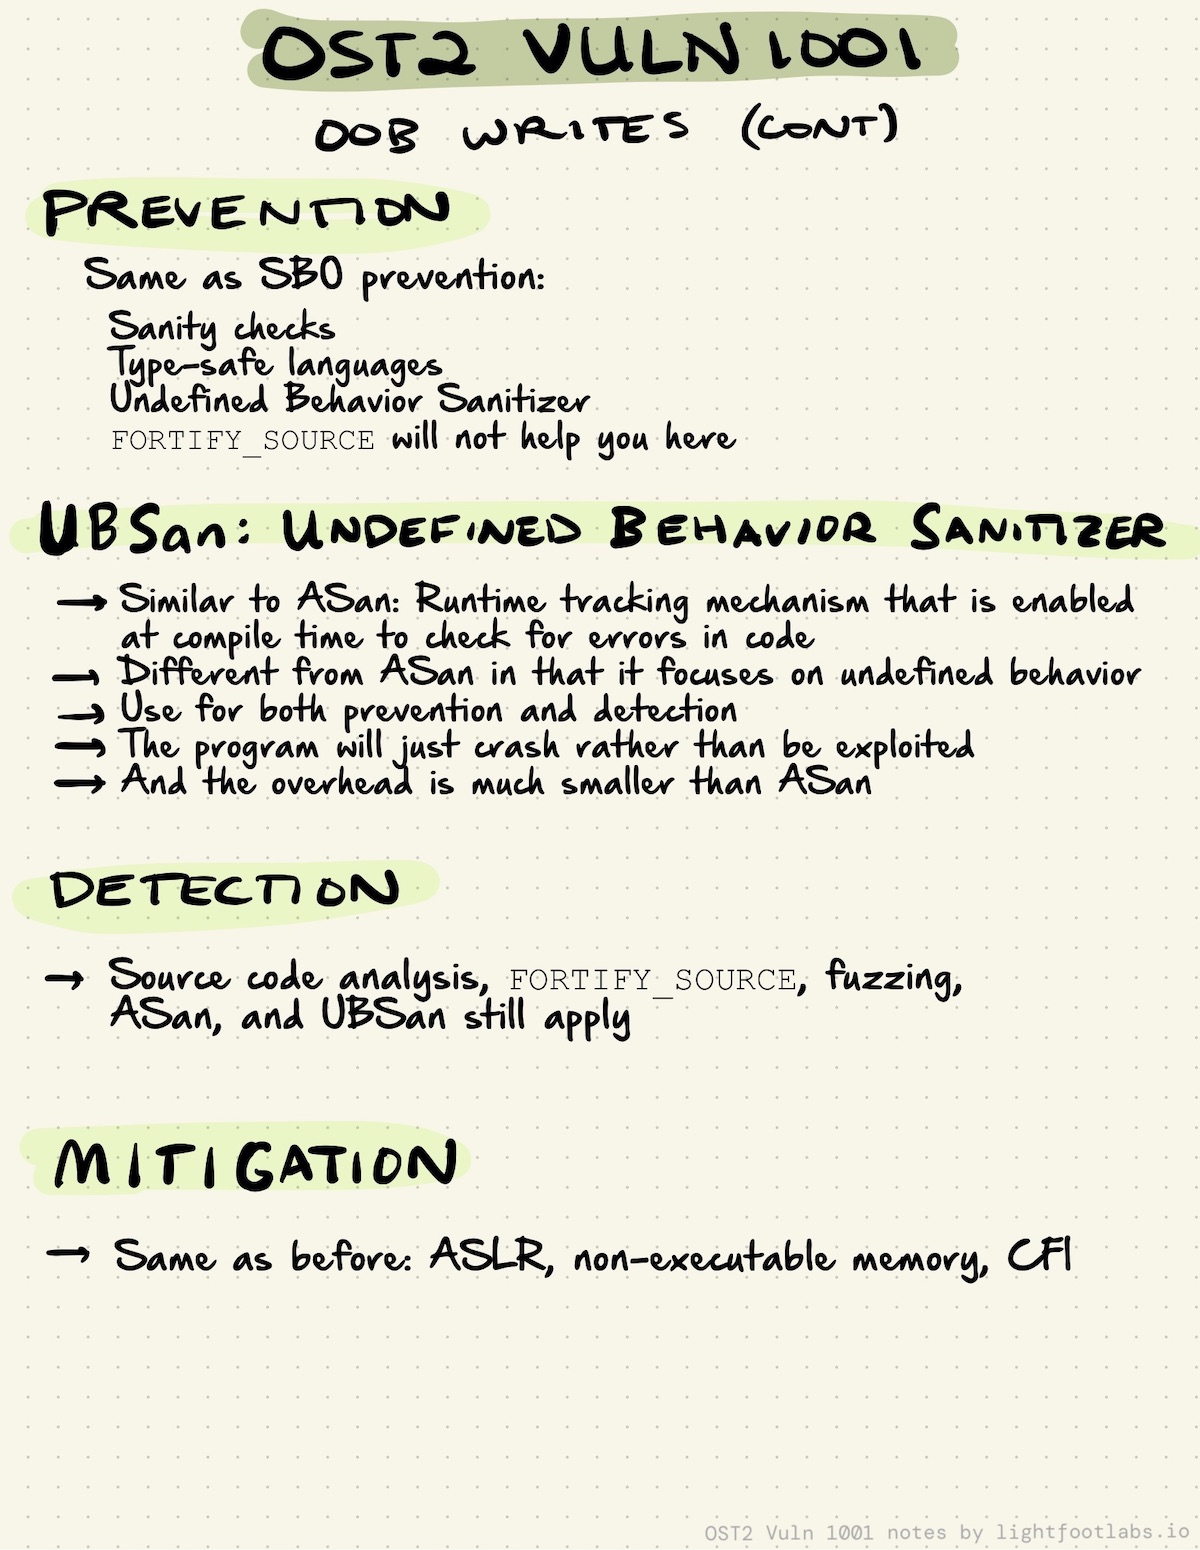 OST2 VULN 1001
OOB WRITES (CONT)
PREVENTION
Same as SBO prevention:
Sanity checks
Type-safe languages
Undefined Behavior Sanitizer
FORTIFY_SOURCE will not help you here
UBSan: UNDEFINED BEHAVIOR SANITIZER
→ Similar to ASan: Runtime tracking mechanism that is enabled
at compile time to check for errors in code
→ Different from ASan in that it focuses on undefined behavior
→ Use for both prevention and detection
→ The program will just crash rather than be exploited
→ And the overhead is much smaller than ASan
DETECTION
→ Source code analysis, FORTIFY_SOURCE, fuzzing,
ASan, and UBSan still apply
MITIGATION
→ Same as before: ASLR, non-executable memory, CFI
OST2 Vuln 1001 notes by lightfootlabs.io